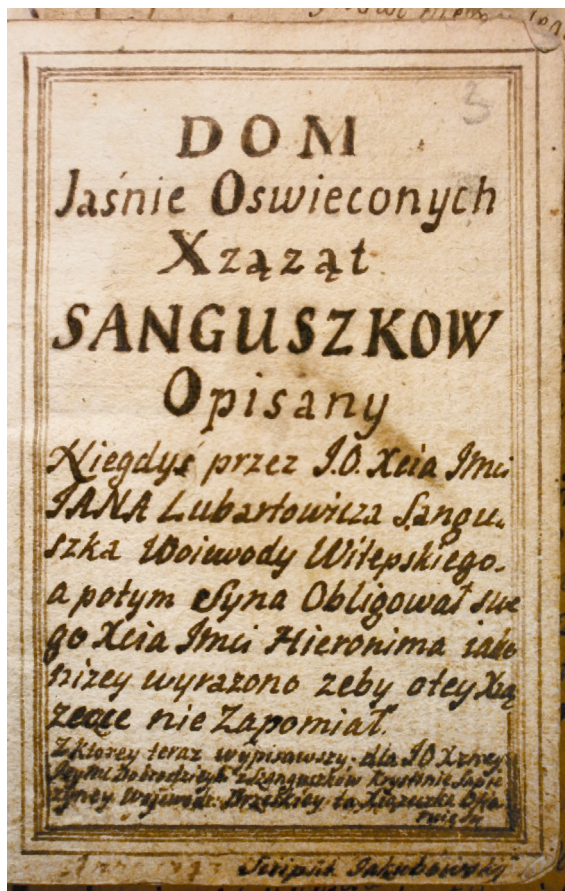 3
DOM
Jaśnie Oswieconych
Xząząt
SANGUSZKOW
Opisany
Niegdyś przez J.O. Xcia Jmci
JANA Lubartowicza Sangu„
szka Woiewody Witepskiego.
a potym Syna Obligował swe
go Xcia Jmci Hieronima iako
nizey wyrazono zeby otey Xią
zecce nie Zapomiał.
Z ktorey teraz wypisawszy dla JO
Dobrodziyki z Sanguszkow Krystinie Sapie
zyney Wojewodz. Brzeskiey ta Xiązeczka Ofia„
ruie Sę
Scripsit Jakubowski